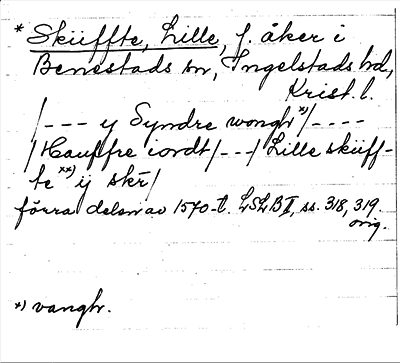 * Sküffte, Lille, f. åker i
Benestads sn, Ingelstads hd,
Krist. l.
/--- y Syndre wonghr x)/----
/Hauffre iordt/---/Lille sküff-
te xx) ij skr̄/
förra delen av 1570-t. LSLB II, ss. 318, 319.
orig.
x) vanghr.